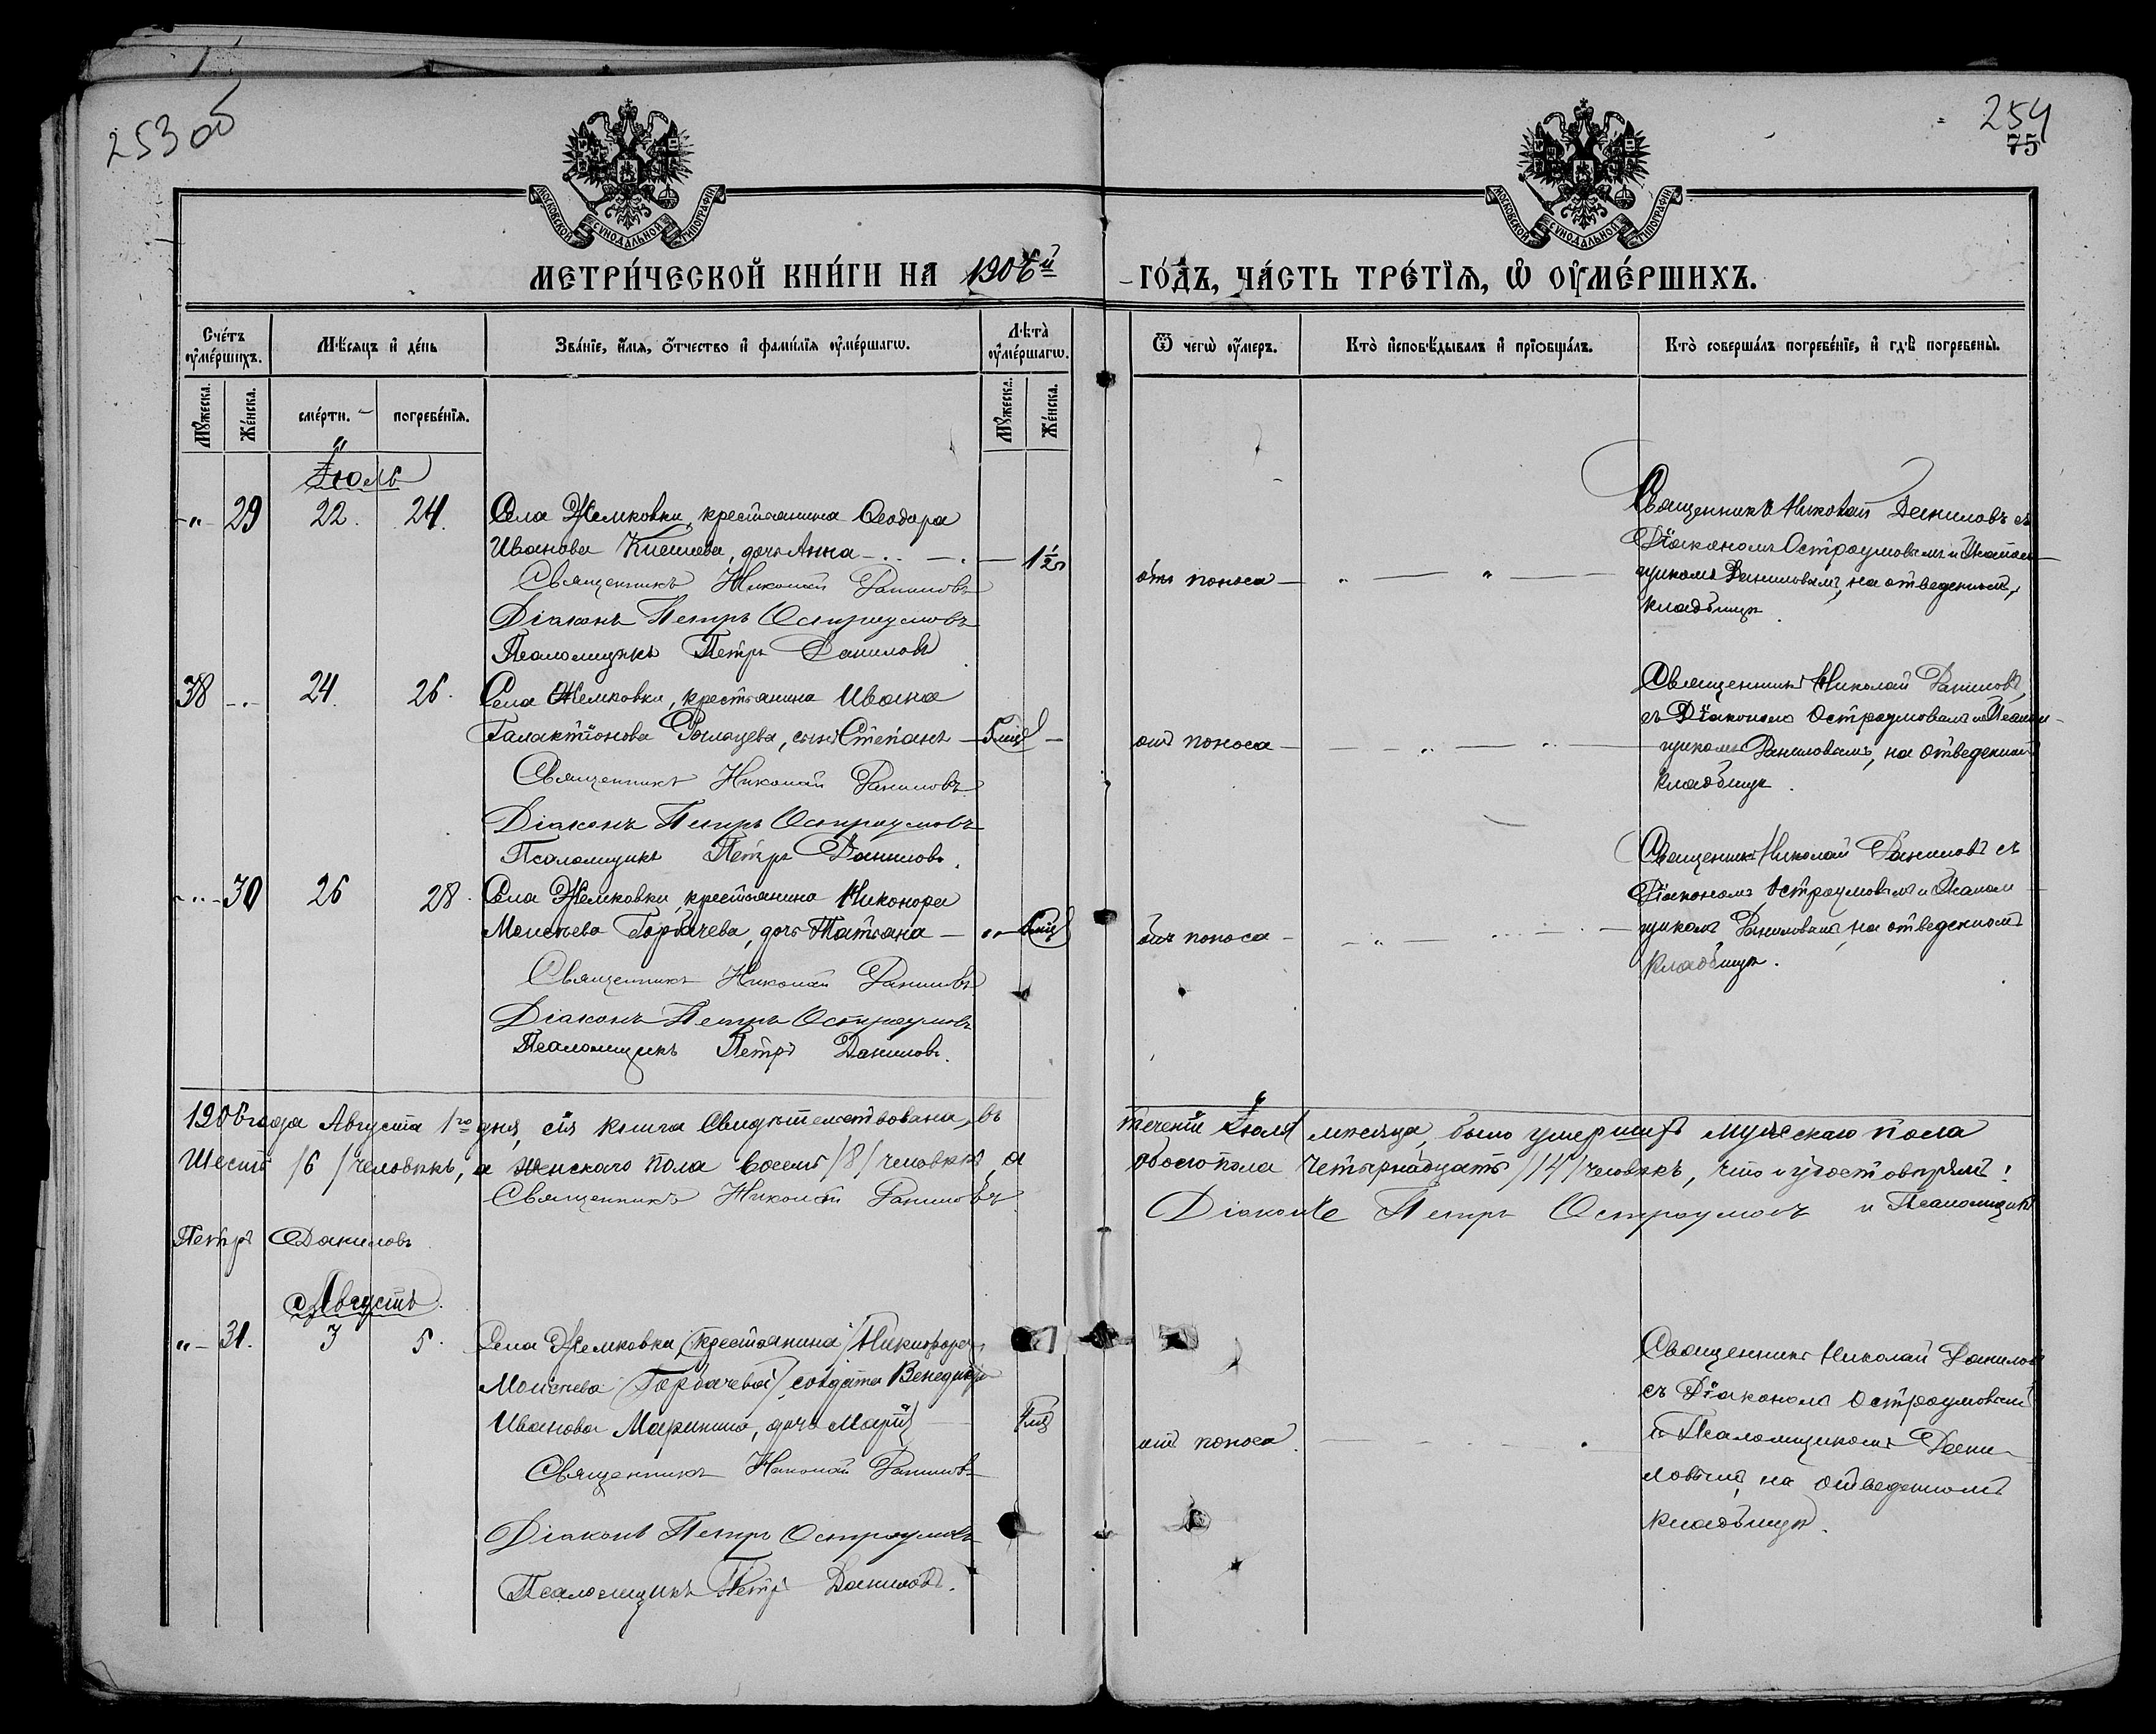 253 об
254
75
МОСКОВСКОЙ СУНОДАЛЬНОЙ ТИПОГРАФІИ
МОСКОВСКОЙ СУНОДАЛЬНОЙ ТИПОГРАФІИ
МЕТРИ́ЧЕСКОЙ КНИ́ГИ НА 1906й ГО́ДЪ, ЧА́СТЬ ТРЕ́ТЇѦ, Ѽ ОУМЕ́РШИХЪ.
Сче́тъ оуме́ршихъ.
Мѣсяцъ и де́нь
Зва́нїе, и́мѧ, о́тчество и фами́лїѧ оуме́ршагѡ.
Лѣта̀ оуме́ршагѡ.
Ѿ чегѡ̀ оу́меръ.
Кто̀ исповѣ́дывалъ и прїобща́лъ.
Кто̀ соверша́лъ погребе́нїе, и гдѣ̀ погребены̀.
Му́жеска.
Же́нска.
сме́рти.
погребе́нїѧ.
Му́жеска.
Же́нска.
Іюль
" 29 22. 24. Села Жемковки, крестьянина Ѳеодора
Иванова дочь Анна — 1½
Священникъ Николай Даниловъ
Діаконъ Петръ Остроумовъ
Псаломщикъ Петръ Даниловъ
отъ поноса
Священникъ Николай Даниловъ съ
Діакономъ Остроумовымъ и Псалом-
щикомъ Даниловымъ, на отведенномъ
кладбищѣ.
38 24. 26. Села Жемковки, крестьянина Ивана
Галактіонова сынъ Стефанъ — 5 мѣс
Священникъ Николай Даниловъ
Діаконъ Петръ Остроумовъ
Псаломщикъ Петръ Даниловъ.
отъ поноса
Священникъ Николай Даниловъ,
съ Діакономъ Остроумовымъ и Псалом-
щикомъ Даниловымъ, на отведенномъ
кладбищѣ.
" 30 26 28. Села Жемковки, крестьянина Никонора
Моисѣева Горбачева, дочь Татьяна —
Священникъ Николай Даниловъ
Діаконъ Петръ Остроумовъ
Псаломщикъ Петръ Даниловъ.
отъ поноса
Священникъ Николай Даниловъ съ
Діакономъ Остроумовымъ и Псалом-
щикомъ Даниловымъ, на отведенномъ
кладбищѣ.
1906 года Августа 1го дня, сія книга свидѣтельствована, въ теченіи Іюля мѣсяца, было умершихъ мужескаго пола
шесть /6/ человѣкъ, а женскаго пола восемь /8/ человѣкъ, а обоего пола четырнадцать /14/ человѣкъ, что и удостовѣряемъ:
Священникъ Николай Даниловъ Діаконъ Петръ Остроумовъ и Псаломщикъ
Петръ Даниловъ
Августъ.
" 31. 3 5. Села Жемковки, /крестьянина/ Никифора
Моисѣева /Горбачева/, солдата Венедикта
Иванова дочь Марія
Священникъ Николай Даниловъ
Діаконъ Петръ Остроумовъ
Псаломщикъ Петръ Даниловъ.
отъ поноса.
Священникъ Николай Даниловъ
съ Діакономъ Остроумовымъ
и Псаломщикомъ Дани-
ловымъ, на отведенномъ
кладбищѣ.